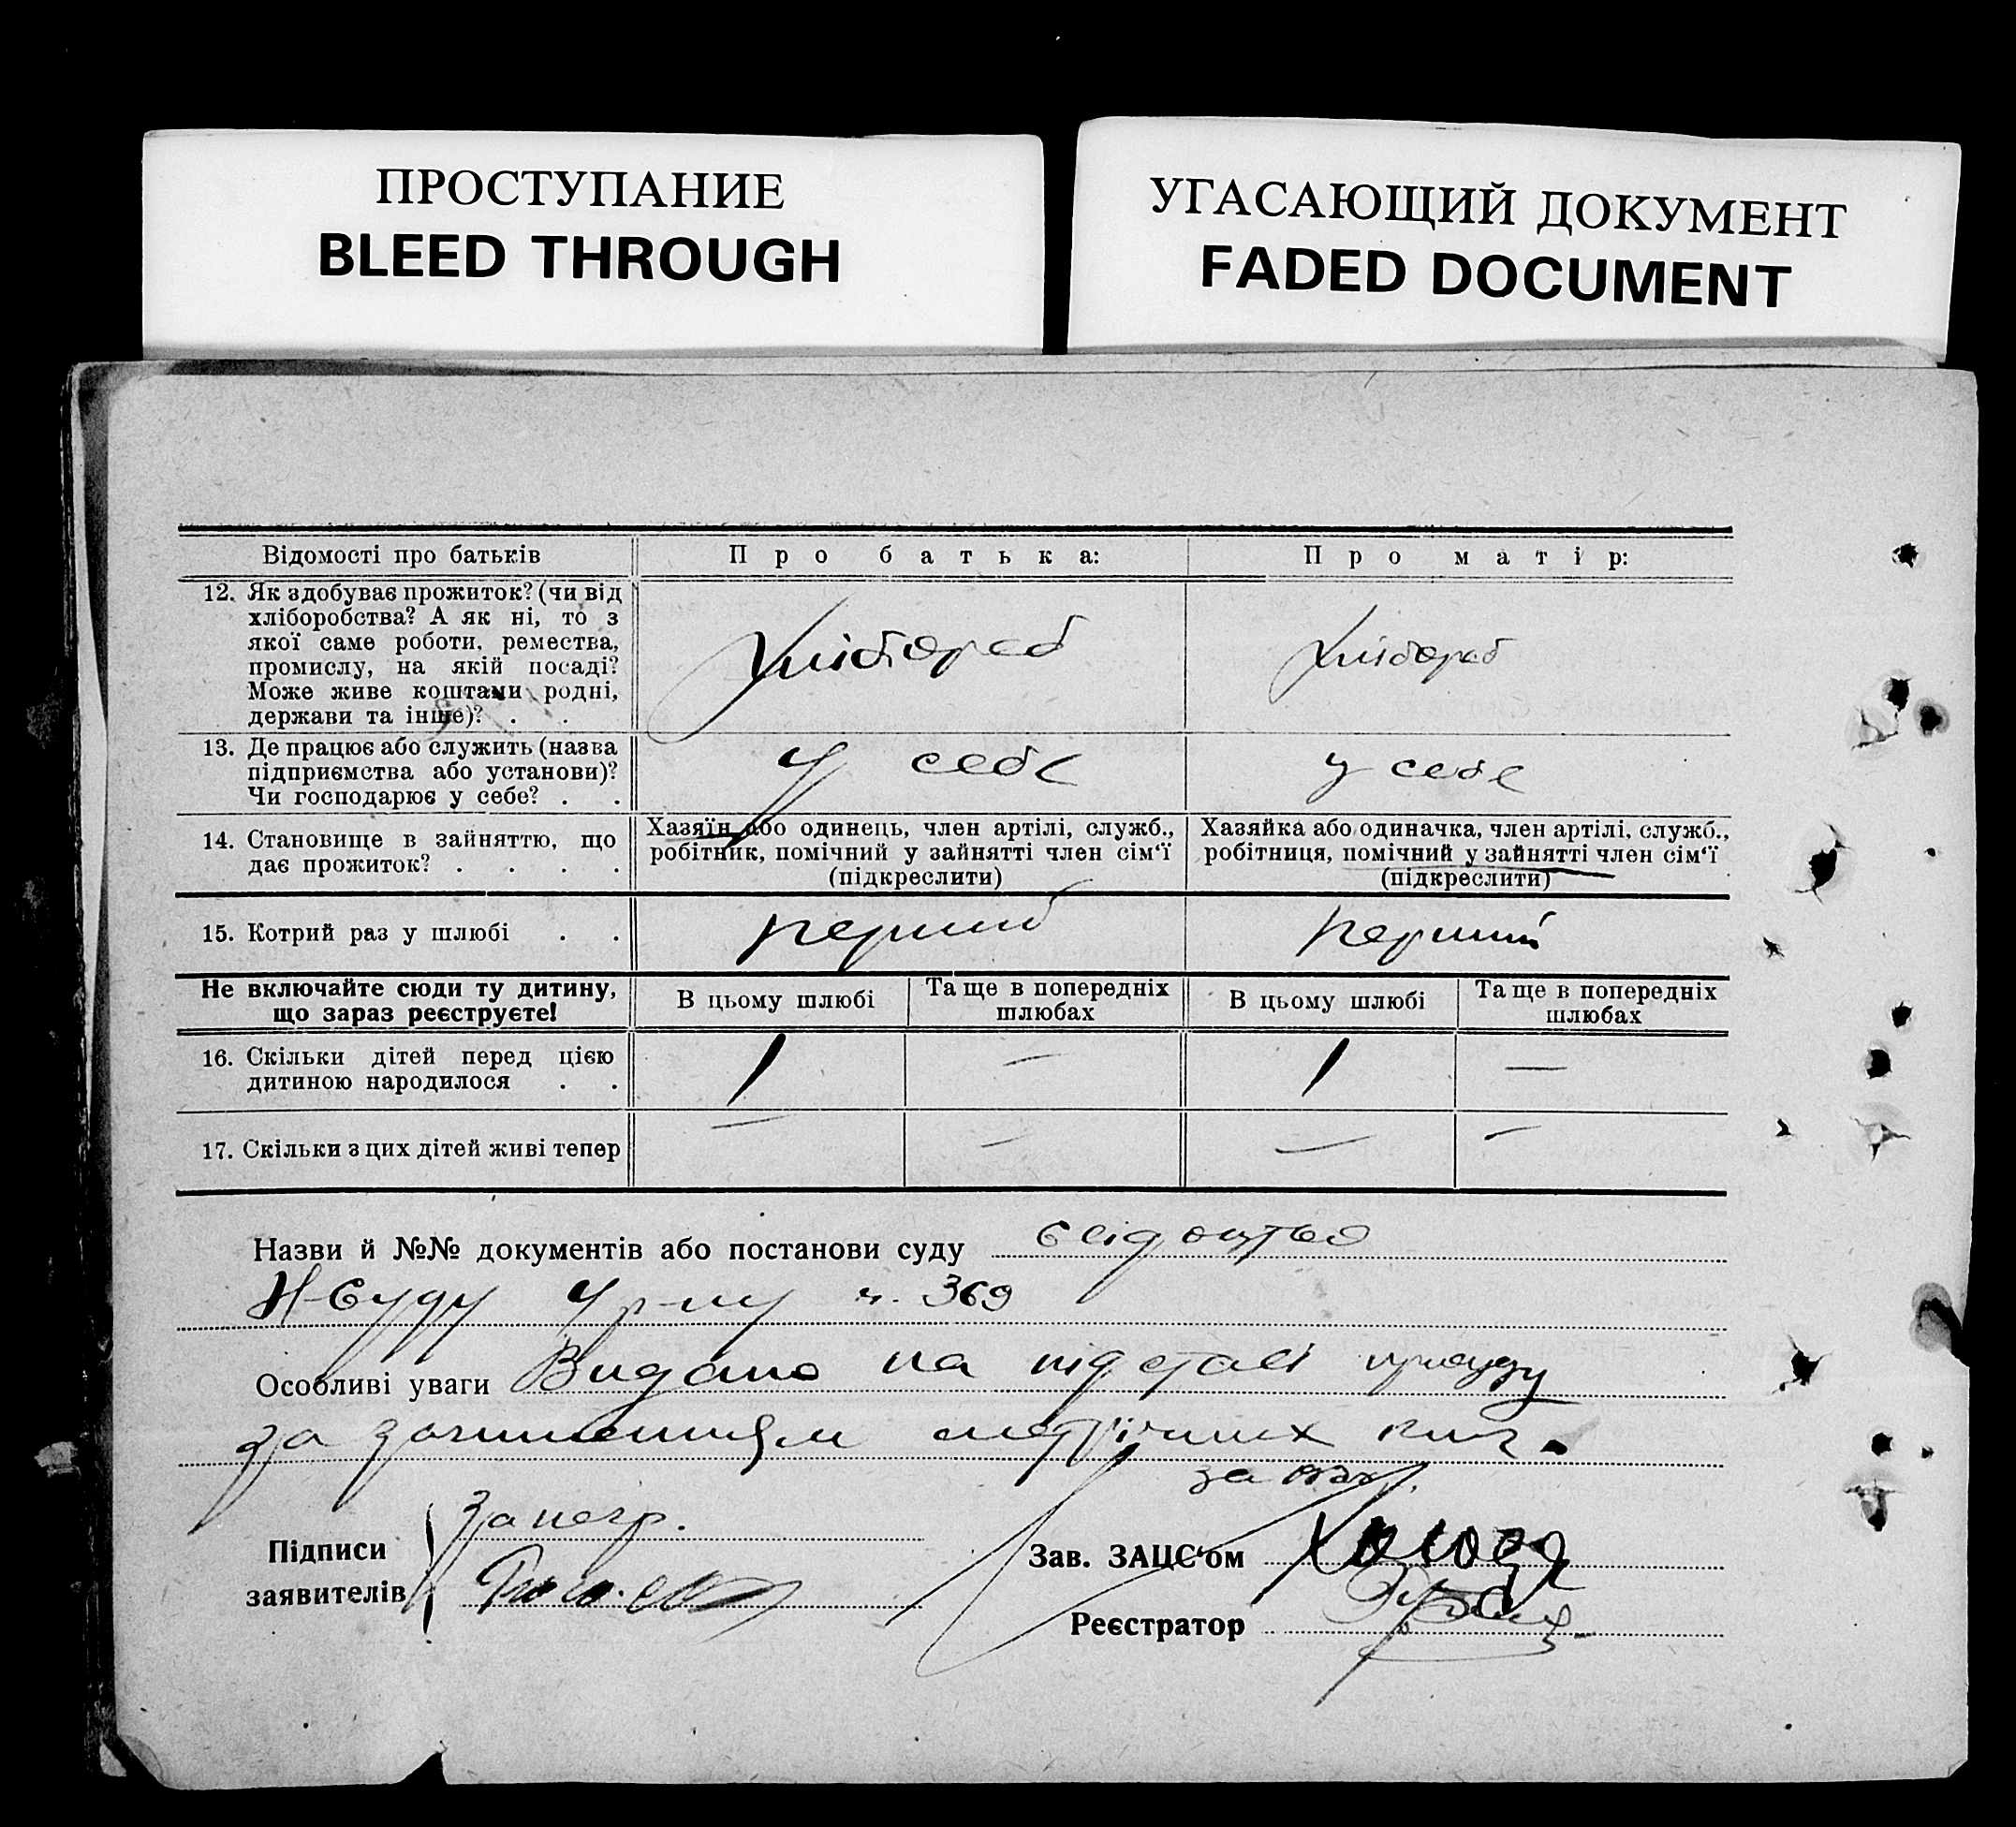 ПРОСТУПАНИЕ
BLEED THROUGH
УГАСАЮЩИЙ ДОКУМЕНТ
FADED DOCUMENT
Відомості про батьків
Про батька:
Про матір:
12. Як здобуває прожиток? (чи від
хліборобства? А як ні, то з
якої саме роботи, ремества,
промислу, на якій посаді?
Може живе коштами родні,
держави та інше)? . .
хлібороб
хлібороб
13. Де працює або служить (назва
підприємства або установи)?
Чи господарює у себе? . .
у себе
у себе
14. Становище в зайняттю, що
дає прожиток? . . . .
Хазяїн або одинець, член артілі, служб.,
робітник, помічний у зайнятті член сім‘ї
(підкреслити)
Хазяйка або одиначка, член артілі, служб.,
робітниця, помічний у зайнятті член сім‘ї
(підкреслити)
15. Котрий раз у шлюбі . .
перший
перший
Не включайте сюди ту дитину,
що зараз реєструєте!
В цьому шлюбі
Та ще в попередніх
шлюбах
В цьому шлюбі
Та ще в попередніх
шлюбах
16. Скільки дітей перед цією
дитиною народилося . .
1 — 1 —
17. Скільки з цих дітей живі тепер
— — — —
Назви й №№ документів або постанови суду
Н-Суду ч. 369
Особливі уваги Видано на підставі присуду
за метричних книг.
Підписи
заявителів
Зав. ЗАЦС‘ом
Реєстратор